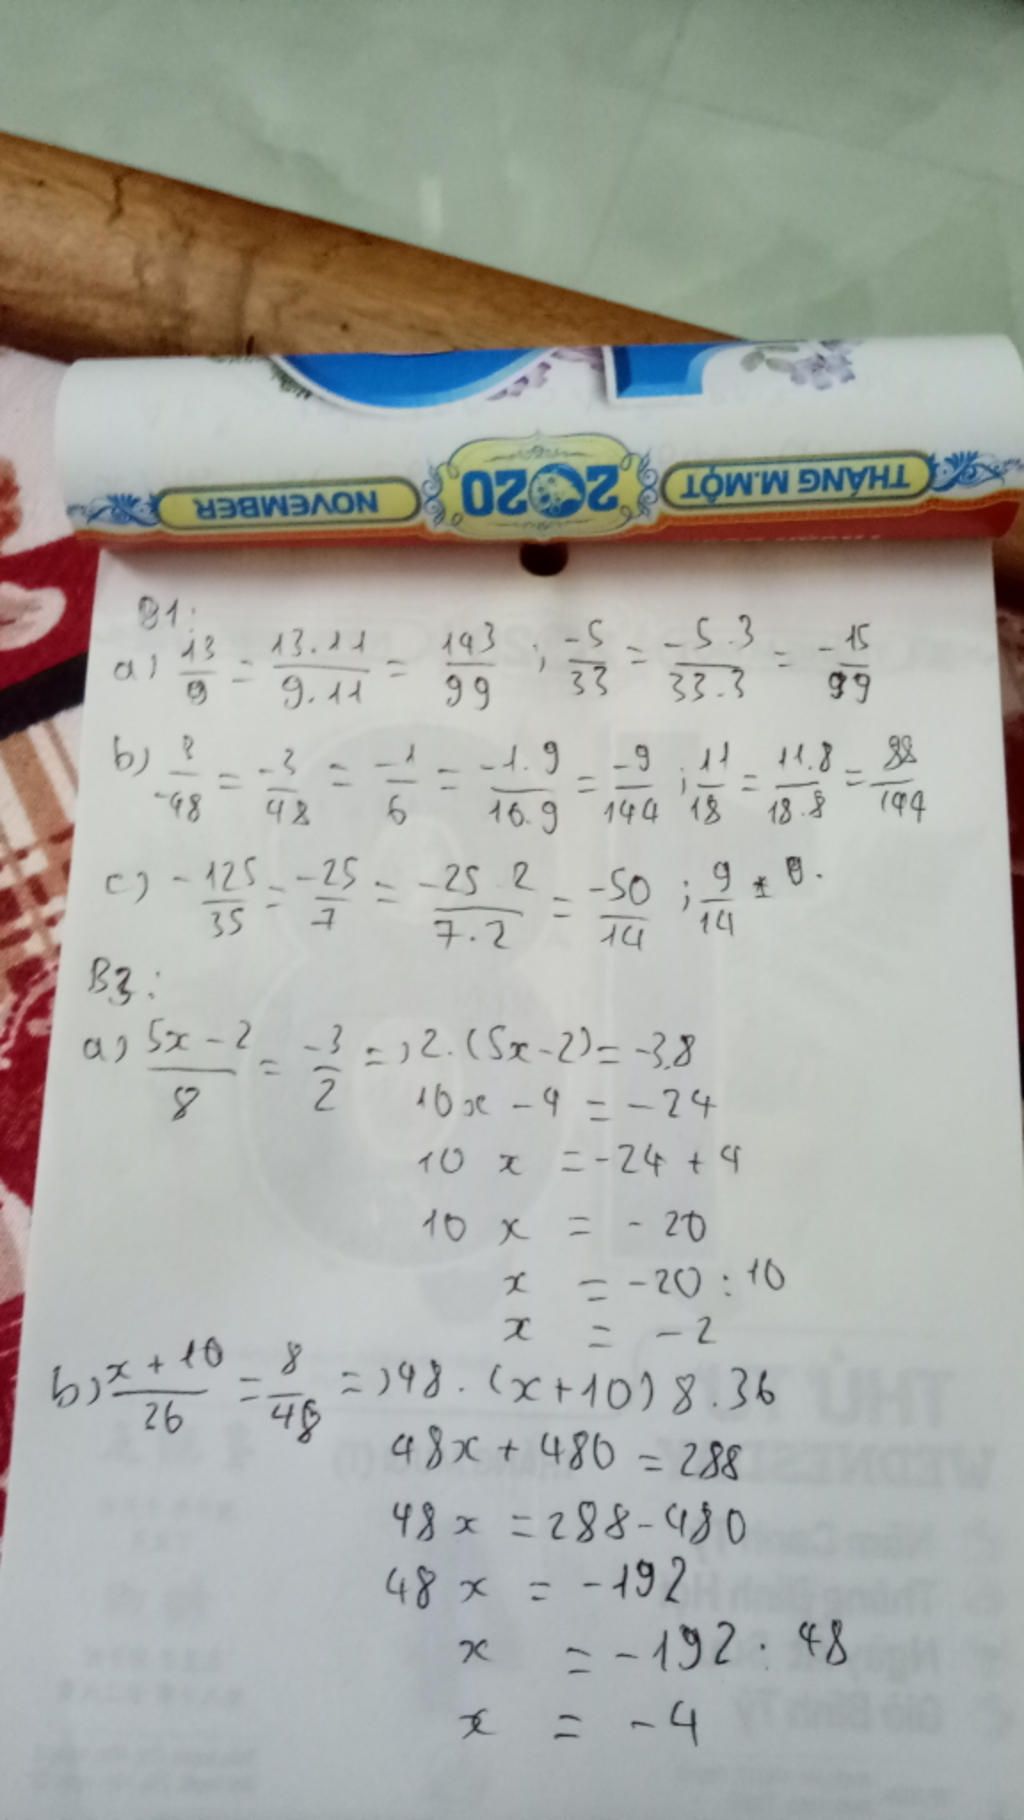 THÁNG M.MỘT 2020 NOVEMBER
B1:
a) 13/9 = 13.11/9.11 = 143/99 ; -5/33 = -5.3/33.3 = -15/99
b) 3/-48 = -3/48 = -1/6 = -1.9/16.9 = -9/144 ; 11/18 = 11.8/18.8 = 88/144
c) -125/35 = -25/7 = -25.2/7.2 = -50/14 ; 9/14
B3:
a) 5x-2/8 = -3/2 =) 2.(5x-2) = -3.8
10x - 4 = -24
10 x = -24 + 4
10 x = - 20
x = -20 : 10
x = - 2
b) x+10/26 = 8/48 =) 48.(x+10) 8.36
48x + 480 = 288
48 x = 288-480
48 x = -192
x = -192 : 48
x = - 4
THỨ TƯ
WEDNESDAY